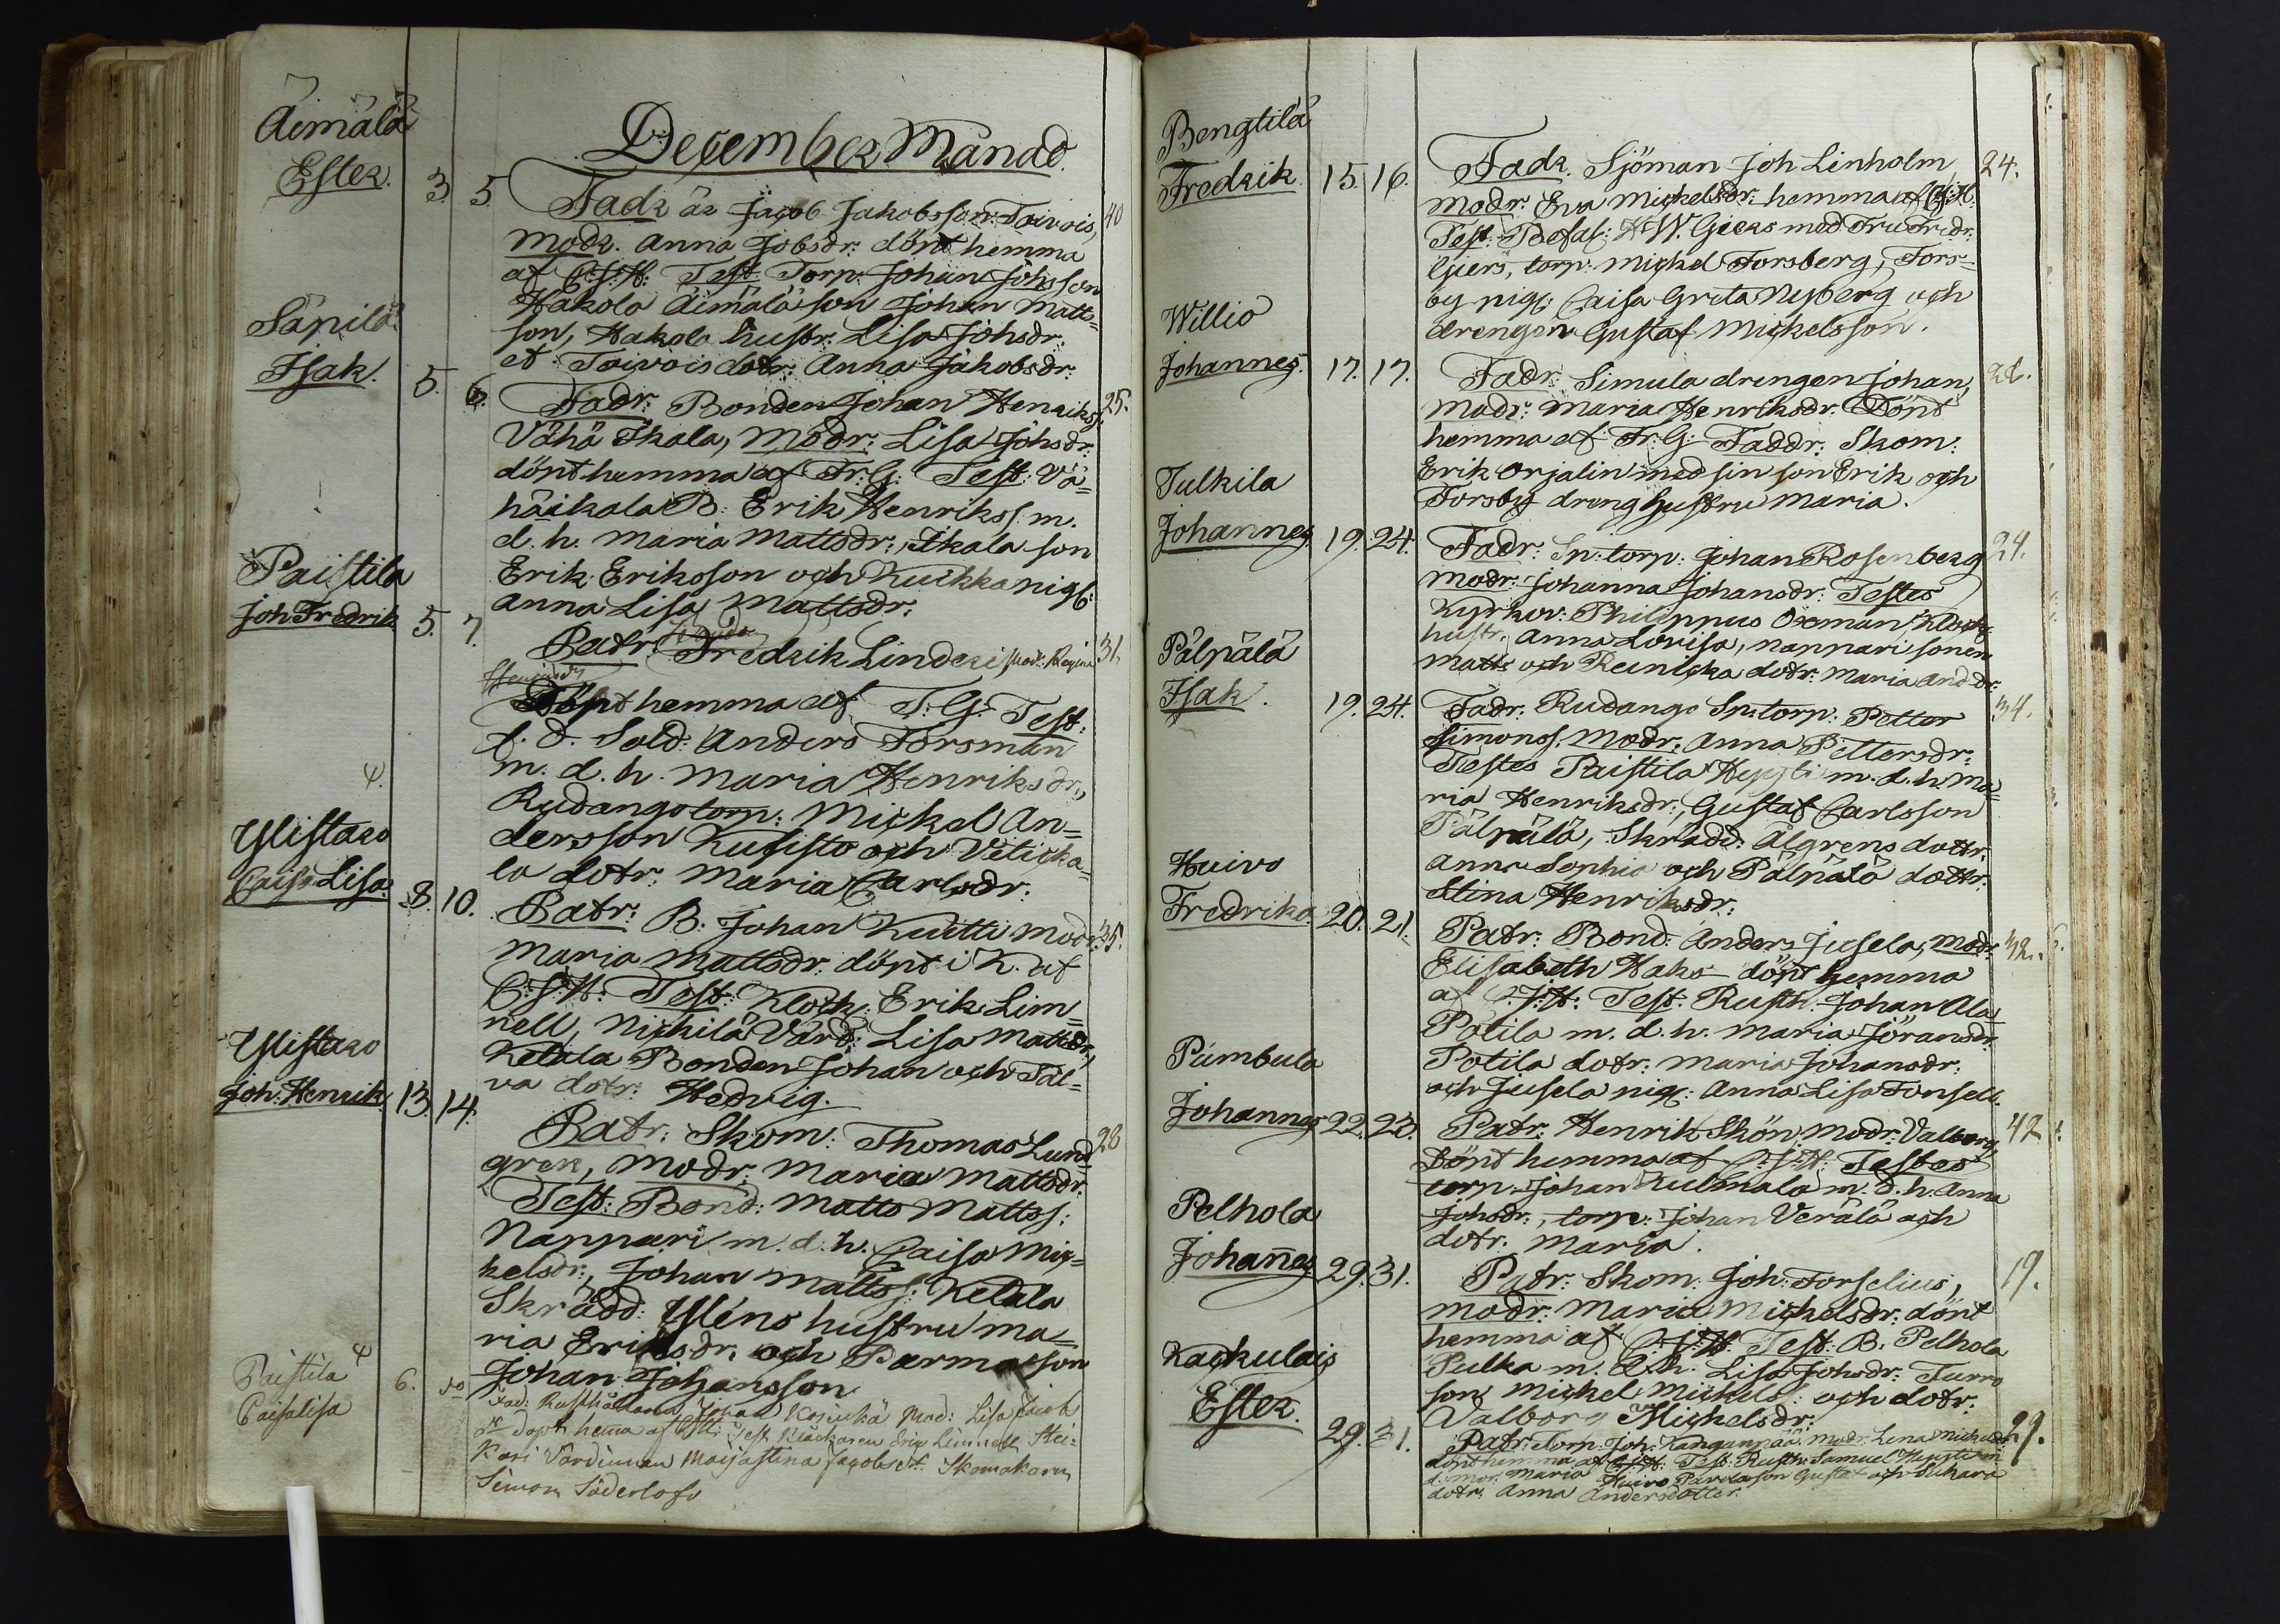 December Månad.
Äimälä
Ester. 3. 5. Fadr är Jacob Jakobsson Toivois, 40
Modr. Anna Jobsdr: dönt hemma
af C.J.H: Test. Torp: Johan Johsson
Hakola Äimälä son Johan Matts=
son, Hakola hustr: Lisa Johsdr.
et Toivois dotr: Anna Jakobsdr:
Säpilä
Isak. 5. 6. Fadr: Bonden Johan Henrikss: 25.
Vähä Ikala, Modr: Lisa Johsdr:
dönt hemma af Fr: G: Test: Vä=
häikala B: Erik Henrikss. m.
d. h. Maria Mattsdr:, Ikala son
Erik Eriksson och Kuikka pig:
Anna Lisa Mattsdr.
Paistila
Joh Fredrik 5. 7. Patr: Fredrik Linderi, Modr: Regina 31.
Döpt hemma af F: G: Test:
f. d. Sold: Anders Forsman
m. d. h. Maria Henriksdr.,
Rudango torp: Mickel An=
dersson Kufisto och
la dotr: Maria Carlsdr:
Ylistaro
Caisa Lisa 8. 10. Patr: B: Johan Kuitti Modr: 35.
Maria Mattsdr. dönt i K. af
C:J:H: Test: Klock: Erik Lim=
nell, Nickilä Värd: Lisa Mattsdr,
Ketala Bonden Johan och Täl=
va dotr: Hedvig.
Ylistaro
Joh. Henrik 13. 14. Patr: Skom: Thomas Lund 28
gren, Modr. Maria Mattsdr.
Test: Bond: Matts Mattss:
Nappari m. d. h. Caisa Mic=
kelsdr:, Johan Mattss: Ketala
Skrädd: Yléns hustru Ma=
ria Eriksdr. och Parma son
Johan Johansson
Paistila
Caisalisa 6. Fad: Rusthållaren Johan Mod: Lisa Jacob
dr döpt hema af Test Kläckaren Eric Limnell,
Kari Värdinnan Maijastina Jacobsdr: Skomakarn
Simon Söderlofs
Bengtilä
Fredrik. 15. 16. Fadr. Sjöman Joh Linholm 24.
Modr: Eva Mickelsdr: hemma af C:J:H:
Test: Befal: H W. Giers med Fru Fredr:
Giers, torp: Mickel Forsberg, Fors=
by pig: Caisa Greta Nyberg och
drengen Gustaf Mickelsson.
Willio
Johannes. 17. 17. Fadr: Simula drengen Johan,
Modr: Maria Henriksdr. Dönt
hemma af Fr. G: Faddr: Skom:
Erik Orjalin med sin son Erik och
Forsby dreng hustru Maria.
Julkila
Johannes 19. 24. Fadr: Sp: torp: Johan Rosenberg 24.
Modr: Johanna Johansdr: Testes
Kyrkov: Philippus Oxman, Klock
hustr. Anna Lovisa, Nappari sonen
Matts och dotr: Maria And:dr:
Pälpälä
Isak. 19. 24. Fadr: Rudango Sp:torp: Petter 34.
Simonss: Modr: Anna Pettersdr:
Testes Paistila m. d. h. Ma=
ria Henriksdr:, Gustaf Carlsson
Pälpälä, Skrädd: Älgrens dottr.
Anna Sophia och Pälpälä dottr:
Stina Henriksdr:
Huivo
Fredrika. 20. 21. Patr: Bond: Anders Jusela, Modr:
Elisabeth Haks döpt hemma
af C.J:H: Test: Rusth: Johan Ala
Potila m. d. h. Maria Jöransdr.
Potila dotr: Maria Johansdr:
och Jusela pig: Anna Lisa Fonsell.
Pumbula
Johannes 22. 23. Patr: Henrik Skön Modr: Valborg, 42
Dönt hemma af C:J:H: Testes
torp: Johan Kulmala m. d. h. Anna
Johsdr:, torp: Johan Verälä och
dotr. Maria.
Pelhola
Johannes 29. 31. Patr: Skom: Joh: Forselius, 19.
Modr: Maria Mickelsdr: dönt
hemma af C.J:H: Test: B. Pelhola
Pulka m. d. h. Lisa Johsdr: Turro
son Mickel Mickels: och dotr:
Valborg Mickelsdr:
Kackulais
Ester. 29. 31. Patr: Torp: Joh: Kanganpää Modr. Lena Mickelsdr 29.
dönt hemma af C:J:H: Test: Rusth: Samuel
d. mor. Maria Huivo Parola son Gustaf och Suhara
dotr: Anna Andersdotter.